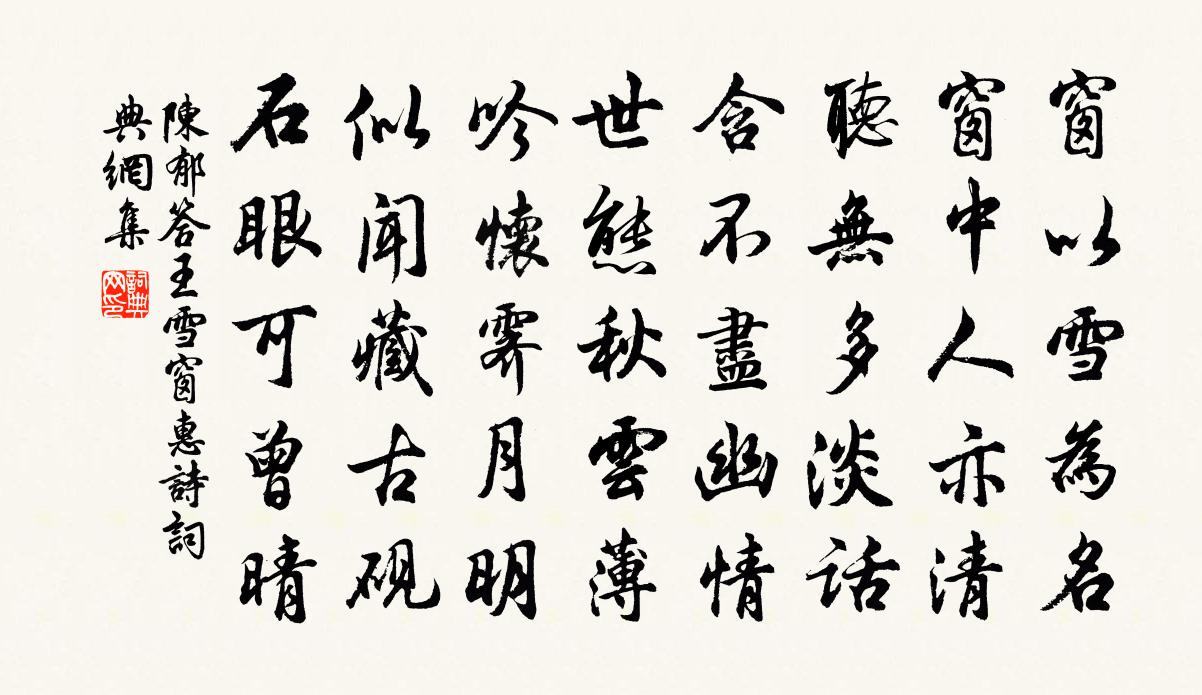 窗以雪為名
窗中人亦清
聽無多淡話
含不盡幽情
世態秋雲薄
吟懷霽月明
似聞藏古硯
石眼可曾晴
陳郁答王雪窗惠詩詞
典網集
詞典網印